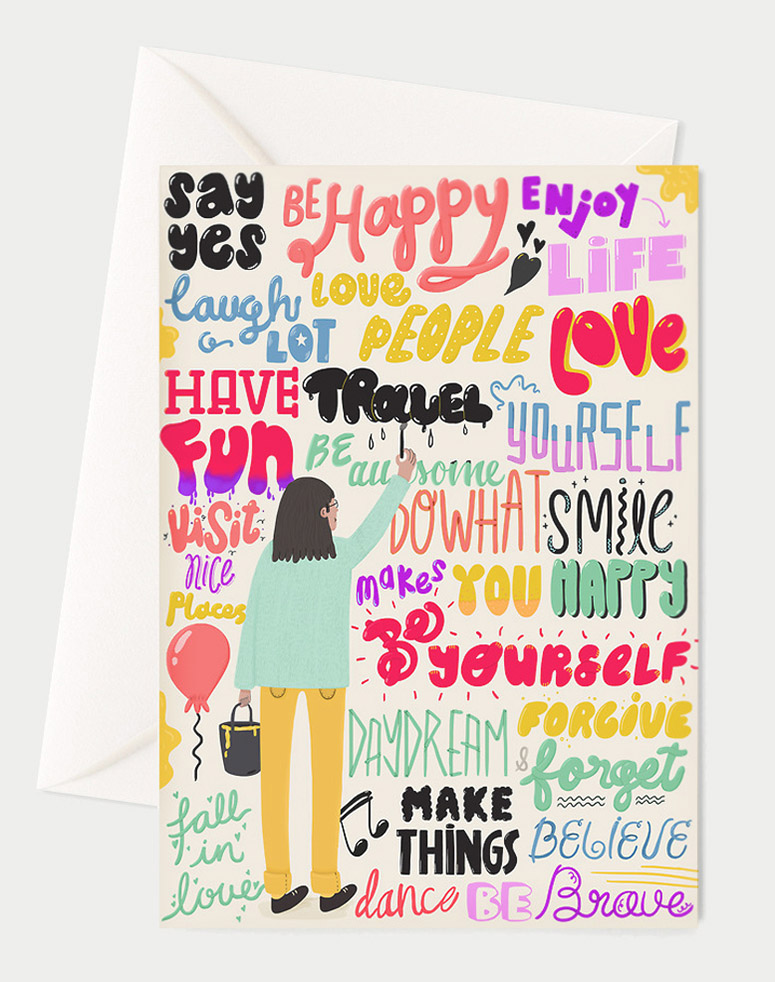 say
yes
BE Happy
ENJOY
LiFE
laugh
a LOT
LOVE
PEOPLE
LOVE
YOURSELF
HAVE
FUN
TRaVEL
BE
awesome
ViSiT
NiCE
Places
DO WHAT
makes YOU HAPPY
SMile
Be
YOURSELF
DAYDREAM
FORGIVE
& forget
fall
in
love
MAKE
THiNGS
BELIEVE
dance
BE Brave